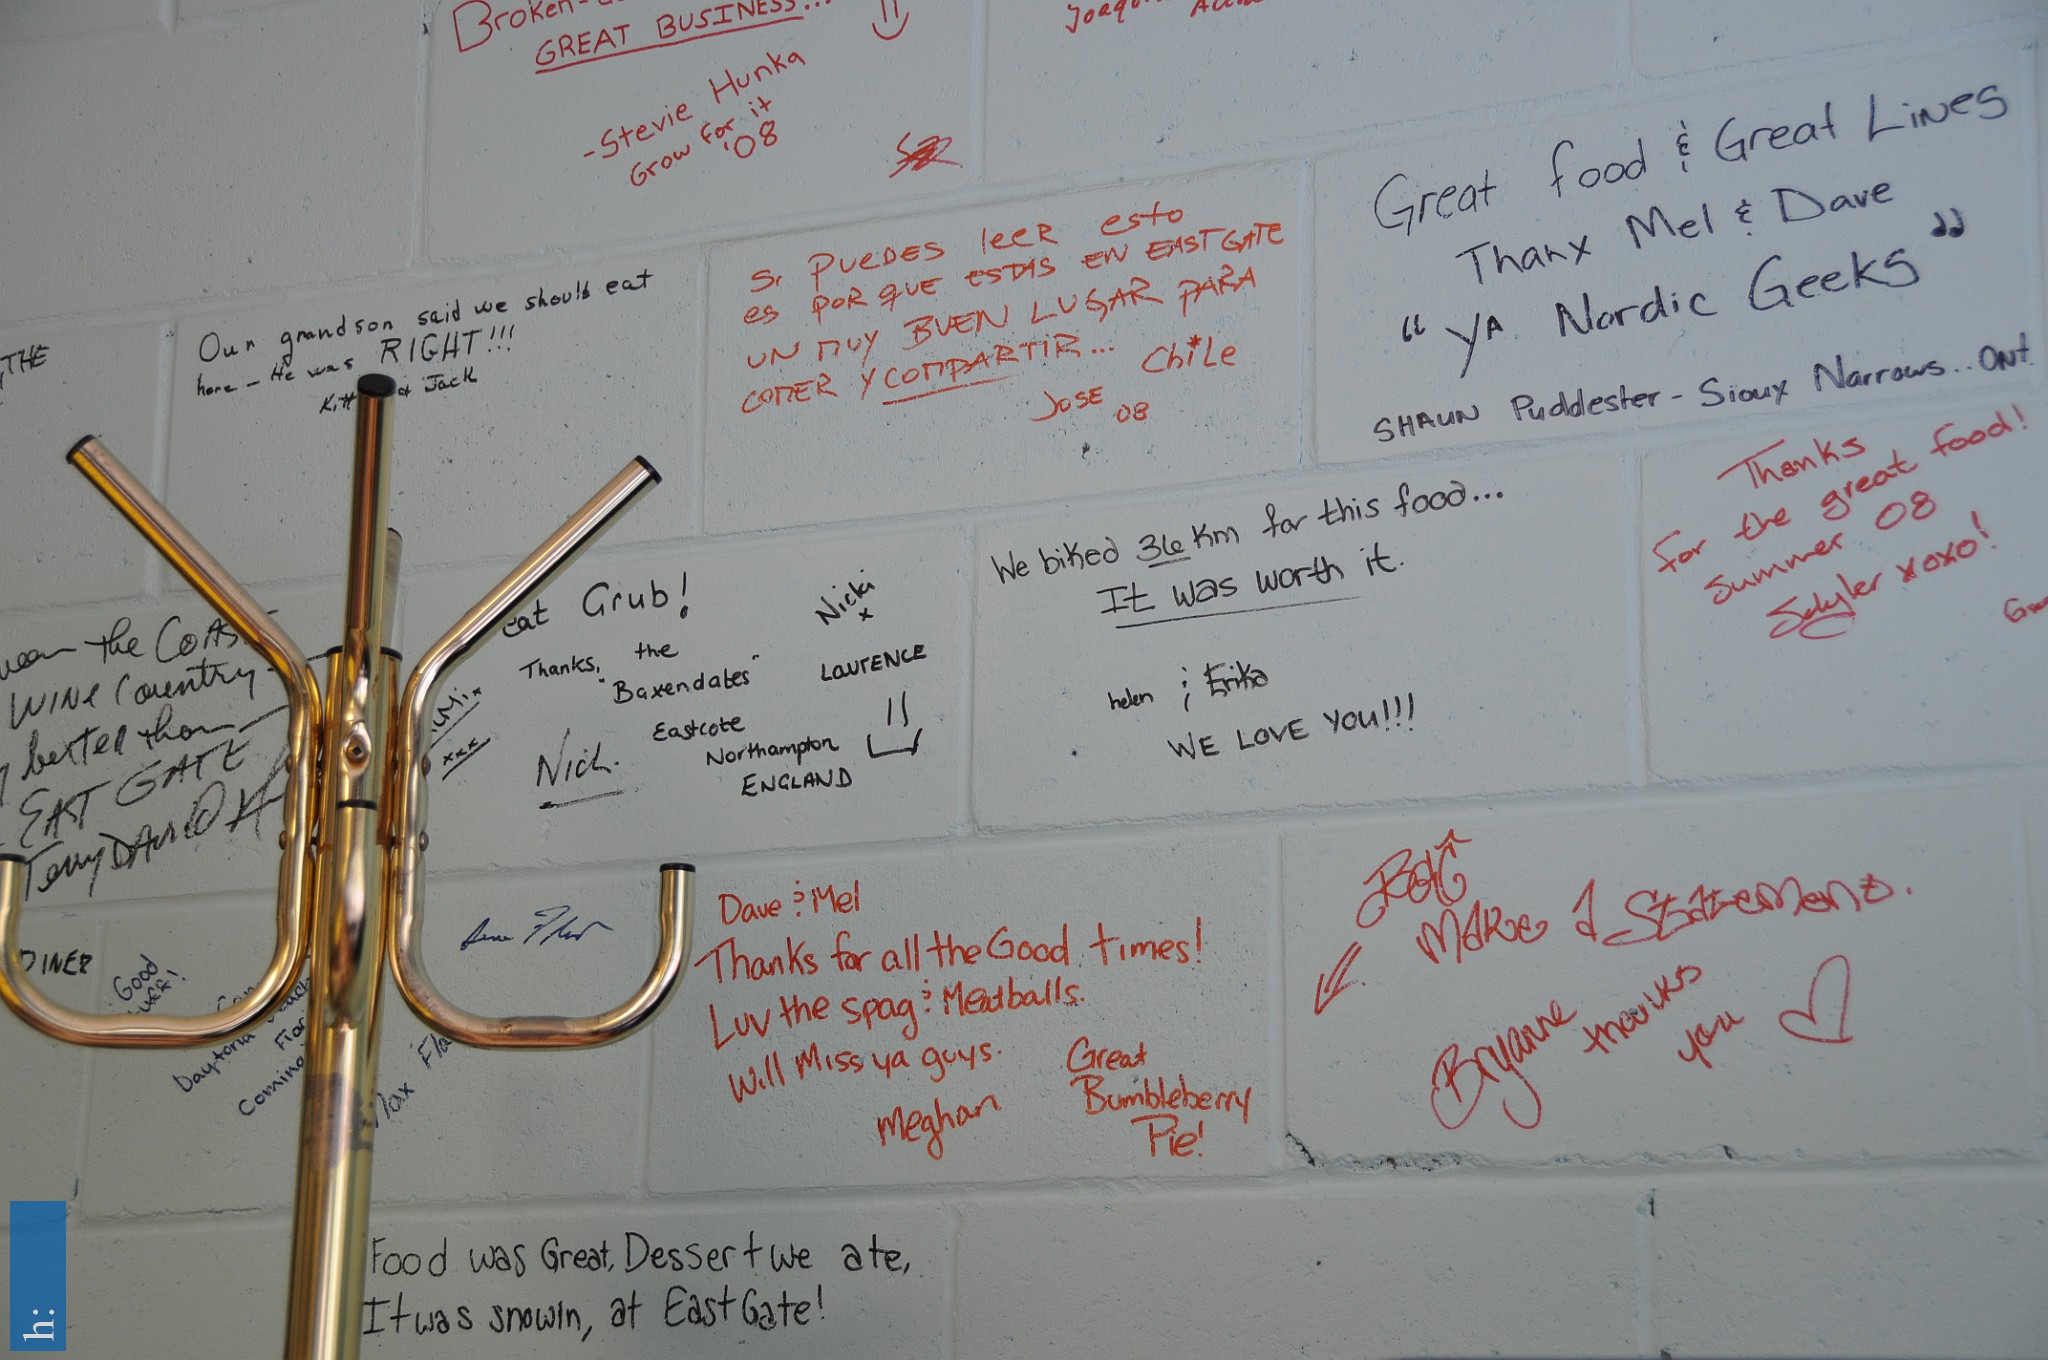 GREAT BUSINESS...
-Stevie Hunka
Grow for it
'08
Great food & Great Lines
Thanx Mel & Dave
"Ya Nordic Geeks"
SHAUN Puddester - Sioux Narrows.. ONT.
Si PUEDES leer esto
es porque estas en EAST GATE
un muy BUEN LUGAR PARA
comer y compartir...
Chile
Jose 08
Our grandson said we should eat
here - He was RIGHT!!!
Jack
THE
Thanks
for the great food!
Summer 08
Schyler xoxo!
We biked 36 Km for this food...
It was worth it.
helen & Erika
WE LOVE YOU!!!
eat Grub!
Thanks, the
"Baxendales"
Eastcote
Northampton
ENGLAND
Nicki
x
LAURENCE
Nick.
xxx
the Coast
WINE Country
better than
EAST GATE
Terry DAVID
DINER
Good
Daytona
Coming
Dave & Mel
Thanks for all the Good times!
Luv the spag & Meatballs.
Will Miss ya guys.
Meghan
Great
Bumbleberry
Pie!
Make A Statement.
Bryanne
thanks
you
Food was Great, Dessert we ate,
It was snowin, at East Gate!
h: